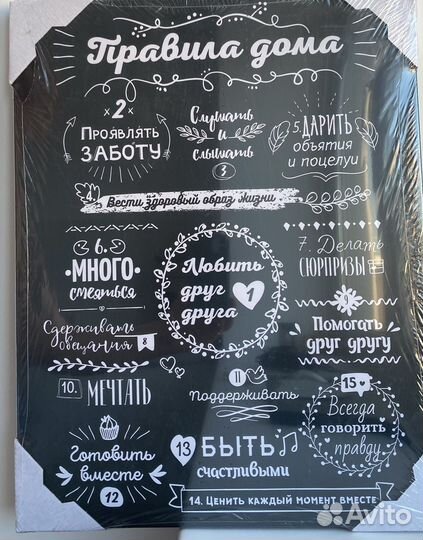 Правила дома
×2×
Проявлять
ЗАБОТУ
Слушать
и
слышать
3
5. ДАРИТЬ
объятия
и поцелуи
4. Вести здоровый образ жизни
6.
МНОГО
смеяться
Любить
друг 1
друга
7. Делать
СЮРПРИЗЫ
Сдерживать
обещания 8
9
Помогать
друг другу
10. МЕЧТАТЬ
11
Поддерживать
15
Всегда
говорить
правду
Готовить
вместе
12
13 БЫТЬ
счастливыми
14. Ценить каждый момент вместе
Avito